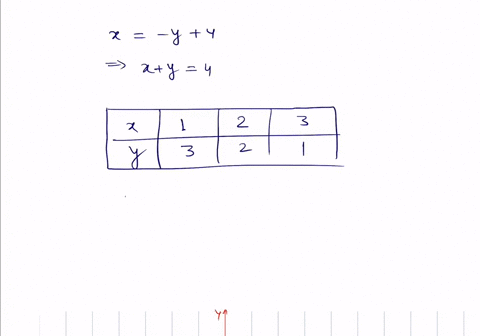 x = -y + 4
⇒ x + y = 4
x 1 2 3
y 3 2 1
y